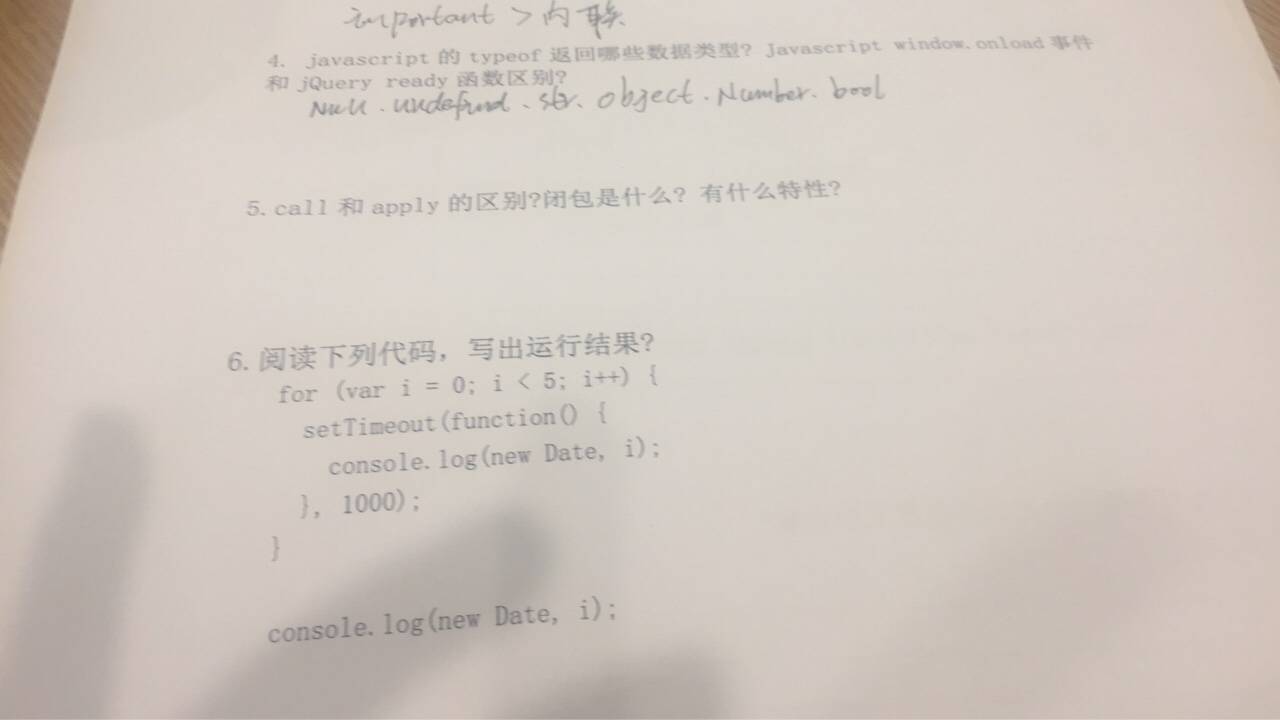 important > 内联
4. javascript 的 typeof 返回哪些数据类型? Javascript window.onload 事件
和 jQuery ready 函数区别?
Null . undefind . str. object . Number. bool
5. call 和 apply 的区别?闭包是什么? 有什么特性?
6. 阅读下列代码, 写出运行结果?
for (var i = 0; i < 5; i++) {
setTimeout(function() {
console.log(new Date, i);
}, 1000);
}
console.log(new Date, i);